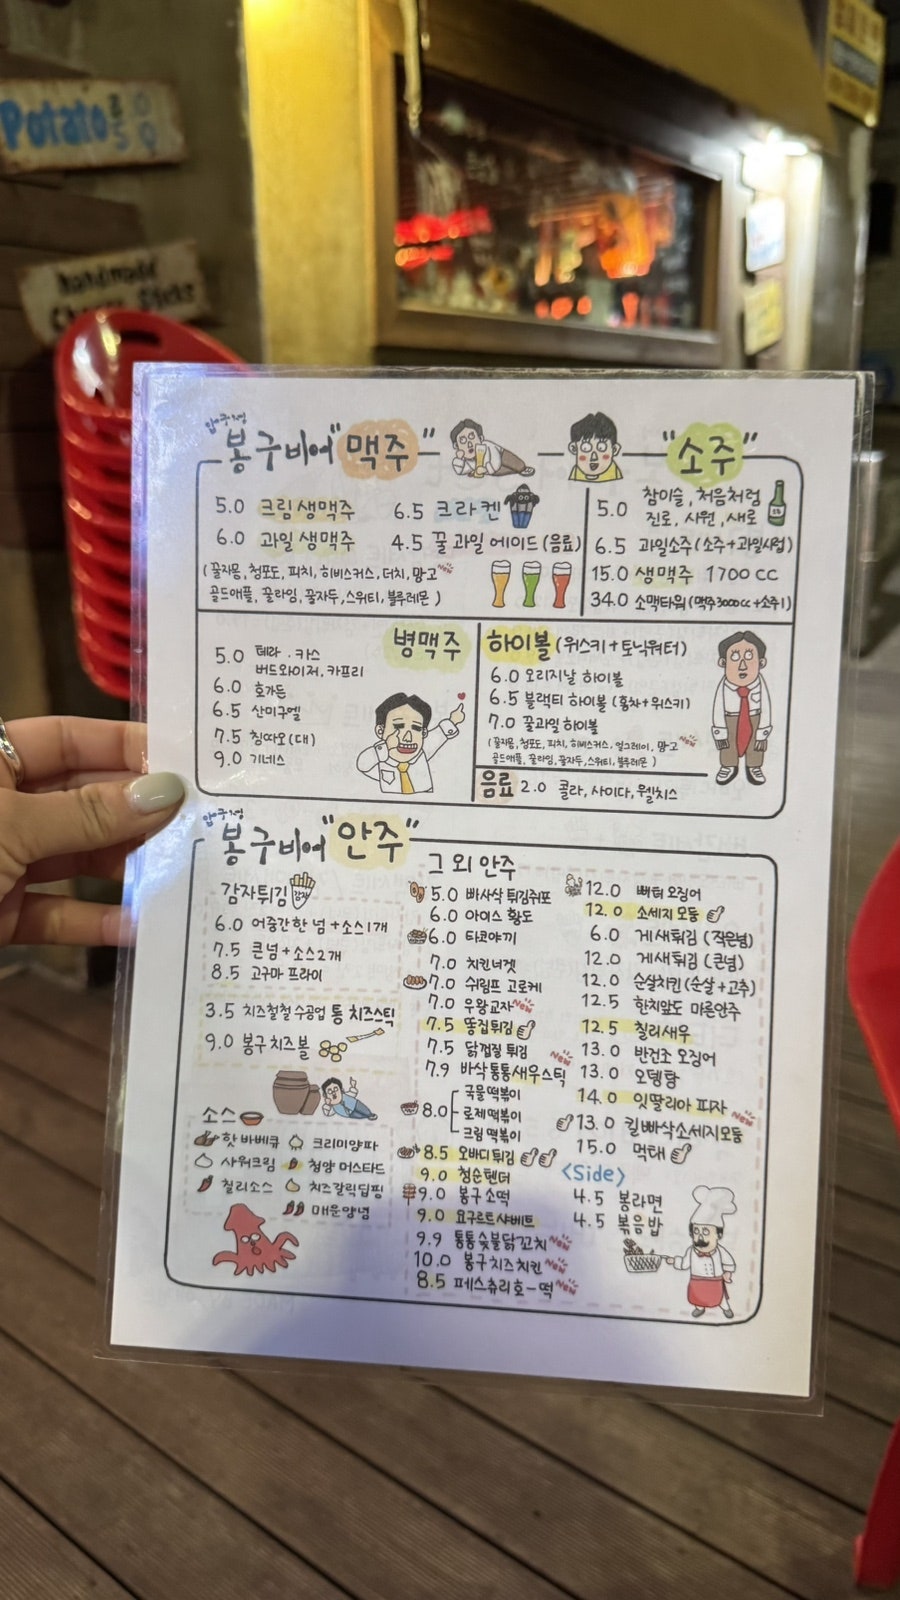 Potato
handmade
압구정
봉구비어 "맥주"
5.0 크림 생맥주
6.0 과일 생맥주
6.5 크라켄
4.5 꿀 과일 에이드 (음료)
(꿀자몽, 청포도, 피치, 히비스커스, 더치, 망고 New
골드애플, 꿀라임, 꿀자두, 스위티, 블루레몬)
"소주"
5.0 참이슬, 처음처럼
진로, 사원, 새로
6.5 과일소주 (소주+과일사럽)
15.0 생맥주 1700 CC
34.0 소맥타워 (맥주3000cc+소주1)
병맥주
5.0 테라 . 카스
버드와이저, 카프리
6.0 호가든
6.5 산미구엘
7.5 칭따오(대)
9.0 기네스
하이볼 (위스키+토닉워터)
6.0 오리지날 하이볼
6.5 블랙티 하이볼 (홍차+위스키)
7.0 꿀과일 하이볼
(꿀자몽, 청포도, 피치, 히비스커스, 얼그레이, 망고 New
골드애플, 꿀라임, 꿀자두, 스위티, 블루레몬)
음료 2.0 콜라, 사이다, 웰치스
압구정
봉구비어 "안주"
감자튀김
감자
6.0 어중간한 넘+소스1개
7.5 큰넘+소스2개
8.5 고구마 프라이
3.5 치즈철철 수공업 통 치즈스틱
9.0 봉구 치즈볼
소스
핫 바베큐
크리미양파
사워크림
청양 머스타드
칠리소스
치즈갈릭딥핑
매운양념
그 외 안주
5.0 빠사삭 튀김쥐포
6.0 아이스 황도
6.0 타코야끼
7.0 치킨너겟
7.0 쉬림프 고로케
7.0 우왕교자 New
7.5 똥집튀김
7.5 닭껍질 튀김
7.9 바삭통통새우스틱 New
8.0
국물떡볶이
로제떡볶이
크림 떡볶이
8.5 오바디튀김
9.0 청순텐더
9.0 봉구소떡
9.0 요구르트샤베트
9.9 통통숯불닭꼬치 New
10.0 봉구치즈치킨 New
8.5 페스츄리호-떡 New
12.0 버터 오징어
12.0 소세지모둠
6.0 게새튀김 (작은넘)
12.0 게새튀김 (큰넘)
12.0 순살치킨 (순살+고추)
12.5 한치앞도 마른안주
12.5 칠리새우
13.0 반건조 오징어
13.0 오뎅탕
14.0 잇딸리아 피자
13.0 킬빠삭소세지모둠 New
15.0 먹태
<Side>
4.5 봉라면
4.5 볶음밥